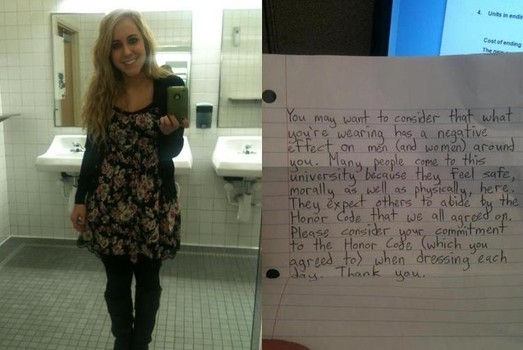 4. Units in endi
Cost of ending
You may want to consider that what
you're wearing has a negative
effect on men (and women) around
you. Many people come to this
university because they feel safe,
morally as well as physically, here.
They expect others to abide by the
Honor Code that we all agreed on.
Please consider your commitment
to the Honor Code (which you
agreed to) when dressing each
day. Thank you.